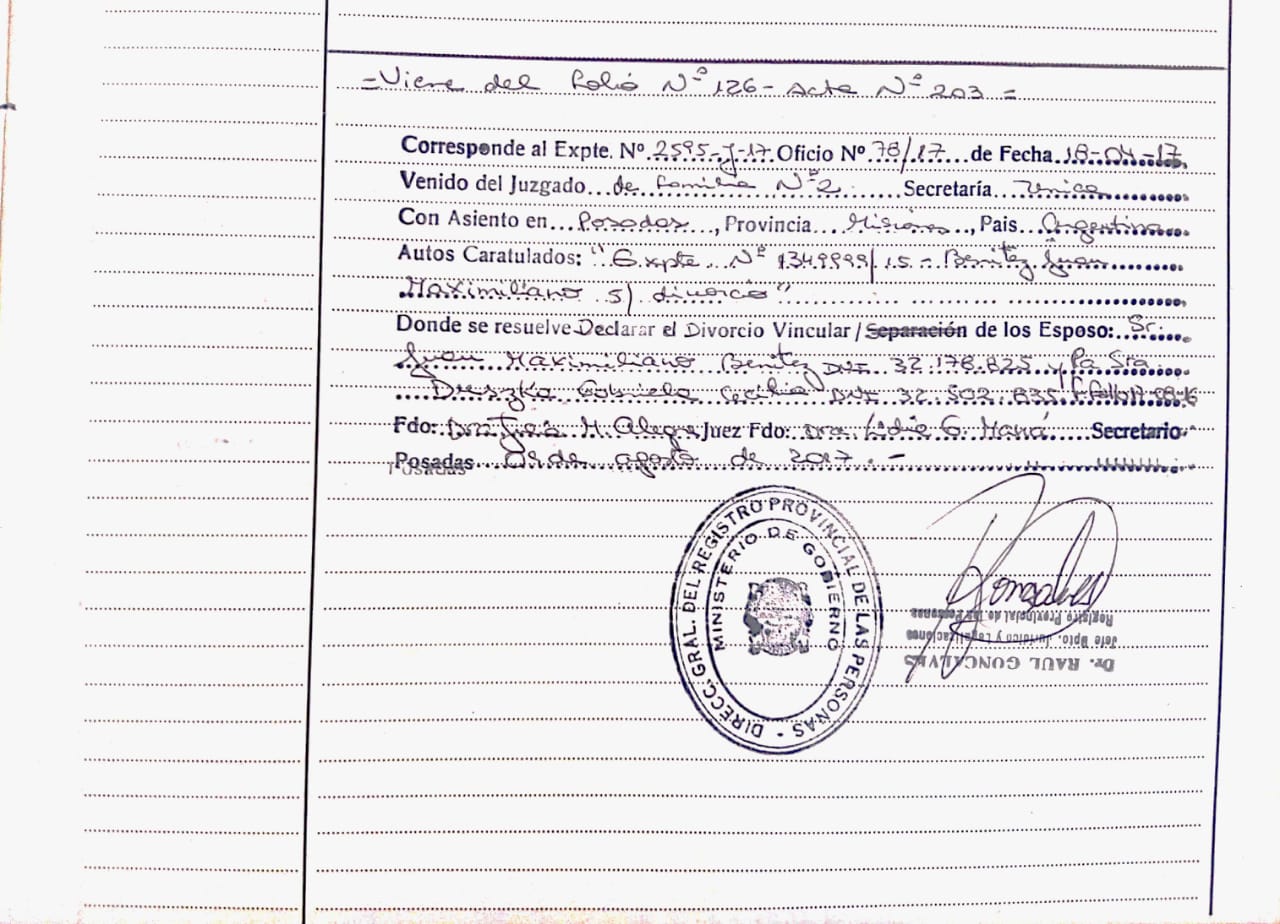 =Viene del Folio Nº 126- Acta Nº 203=
Corresponde al Expte. Nº 2595-J-17 Oficio Nº 78/17 de Fecha 18-04-17
Venido del Juzgado de Familia Nº2 Secretaría Unica
Con Asiento en Posadas, Provincia Misiones, Pais Argentina
Autos Caratulados: "Expte. Nº 1349999/15.- Benitez Juan
Maximiliano s/ divorcio"
Donde se resuelve Declarar el Divorcio Vincular / Separación de los Esposo: Sr.
Juan Maximiliano Benitez DNI 32.178.825 y la Sra
Gabriela Cecilia DNI 32.502.835
Fdo: M. Alegre Juez Fdo: Dra. Lidie G. Secretario
Posadas de agosto de 2017.-
DIRECC. GRAL. DEL REGISTRO PROVINCIAL DE LAS PERSONAS -
MINISTERIO DE GOBIERNO
Dr. RAUL GONCALVES
Jefe Dpto. Jurídico y Legalizaciones
Registro Provincial de las Personas